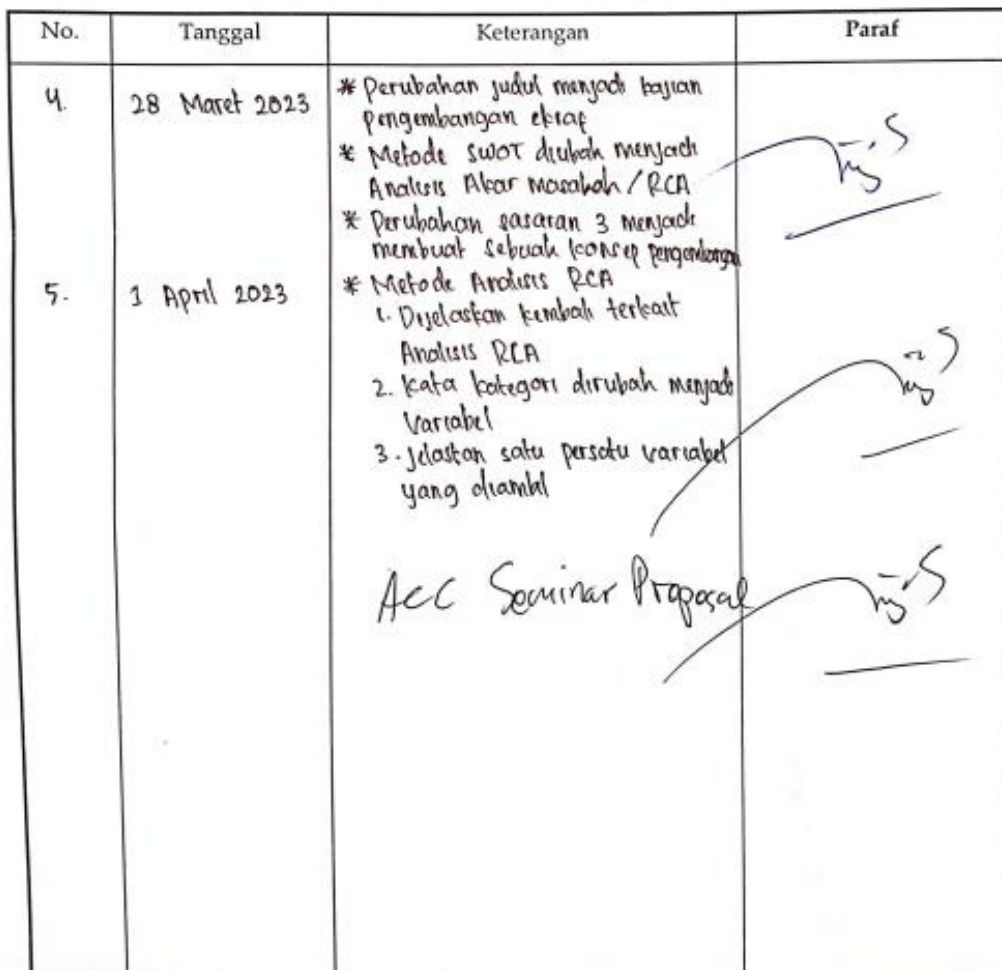 No. Tanggal Keterangan Paraf
4. 28 Maret 2023 * Perubahan judul menjadi kajian
pengembangan ekraf
* Metode SWOT diubah menjadi
Analisis Akar Masalah / RCA
* Perubahan sasaran 3 menjadi
membuat sebuah konsep pengembangan
5. 1 April 2023 * Metode Analisis RCA
1. Dijelaskan kembali terkait
Analisis RCA
2. Kata kategori dirubah menjadi
Variabel
3. Jelaskan satu persatu variabel
yang diambil
ACC Seminar Proposal